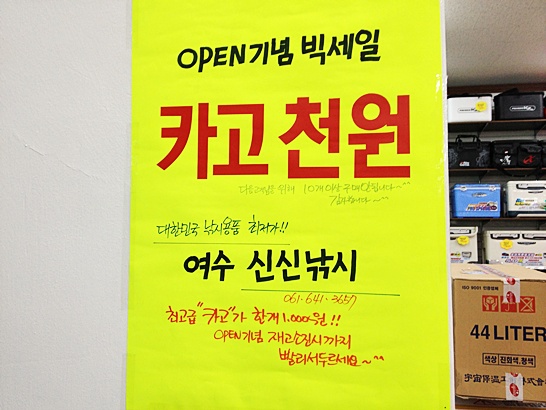 OPEN기념 빅세일
카고 천원
다른고객님을 위해 10개이상 구매안됩니다~^^
감사합니다~^^
대한민국 낚시용품 최저가!!
여수 신신낚시
061.641.3657
최고급 "카고"가 한개 1.000원!!
OPEN기념 재고소진시까지
빨리서두르세요~^^
ISO 9001 인증업체
44 LITER
색상 진화색, 청색